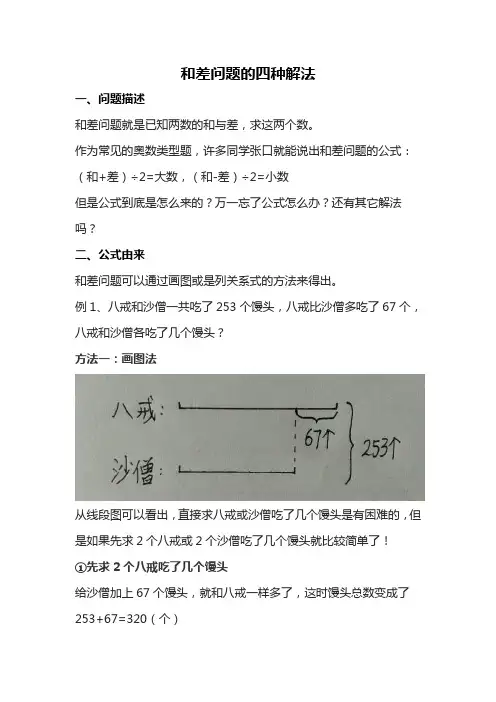 和差问题的四种解法
一、问题描述
和差问题就是已知两数的和与差，求这两个数。
作为常见的奥数类型题，许多同学张口就能说出和差问题的公式：
（和+差）÷2=大数，（和-差）÷2=小数
但是公式到底是怎么来的？万一忘了公式怎么办？还有其它解法
吗？
二、公式由来
和差问题可以通过画图或是列关系式的方法来得出。
例1、八戒和沙僧一共吃了253个馒头，八戒比沙僧多吃了67个，
八戒和沙僧各吃了几个馒头？
方法一：画图法
八戒：
67个
253个
沙僧：
从线段图可以看出，直接求八戒或沙僧吃了几个馒头是有困难的，但
是如果先求2个八戒或2个沙僧吃了几个馒头就比较简单了！
①先求2个八戒吃了几个馒头
给沙僧加上67个馒头，就和八戒一样多了，这时馒头总数变成了
253+67=320（个）